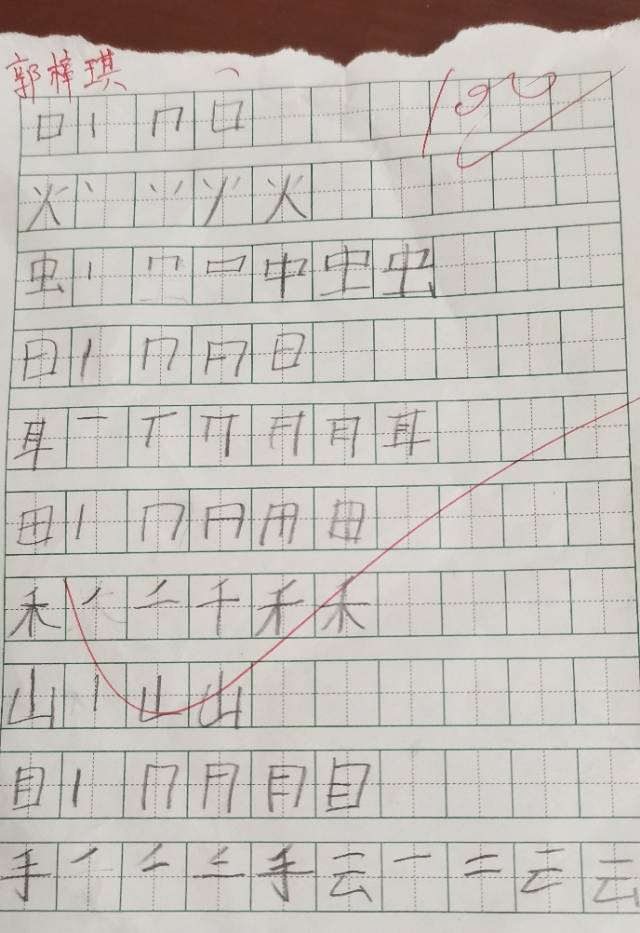 郭梓琪
100
口 丨 冂 口
火 丶 丷 火
虫 丨 冂 口 中 虫 虫
日 丨 冂 日
耳 一 丅 耳
田 丨 冂 田
禾 丿 二 千 禾 禾
山 丨 山 山
目 丨 冂 月 目
手 丿 二 三 手 云 一 二 云 云